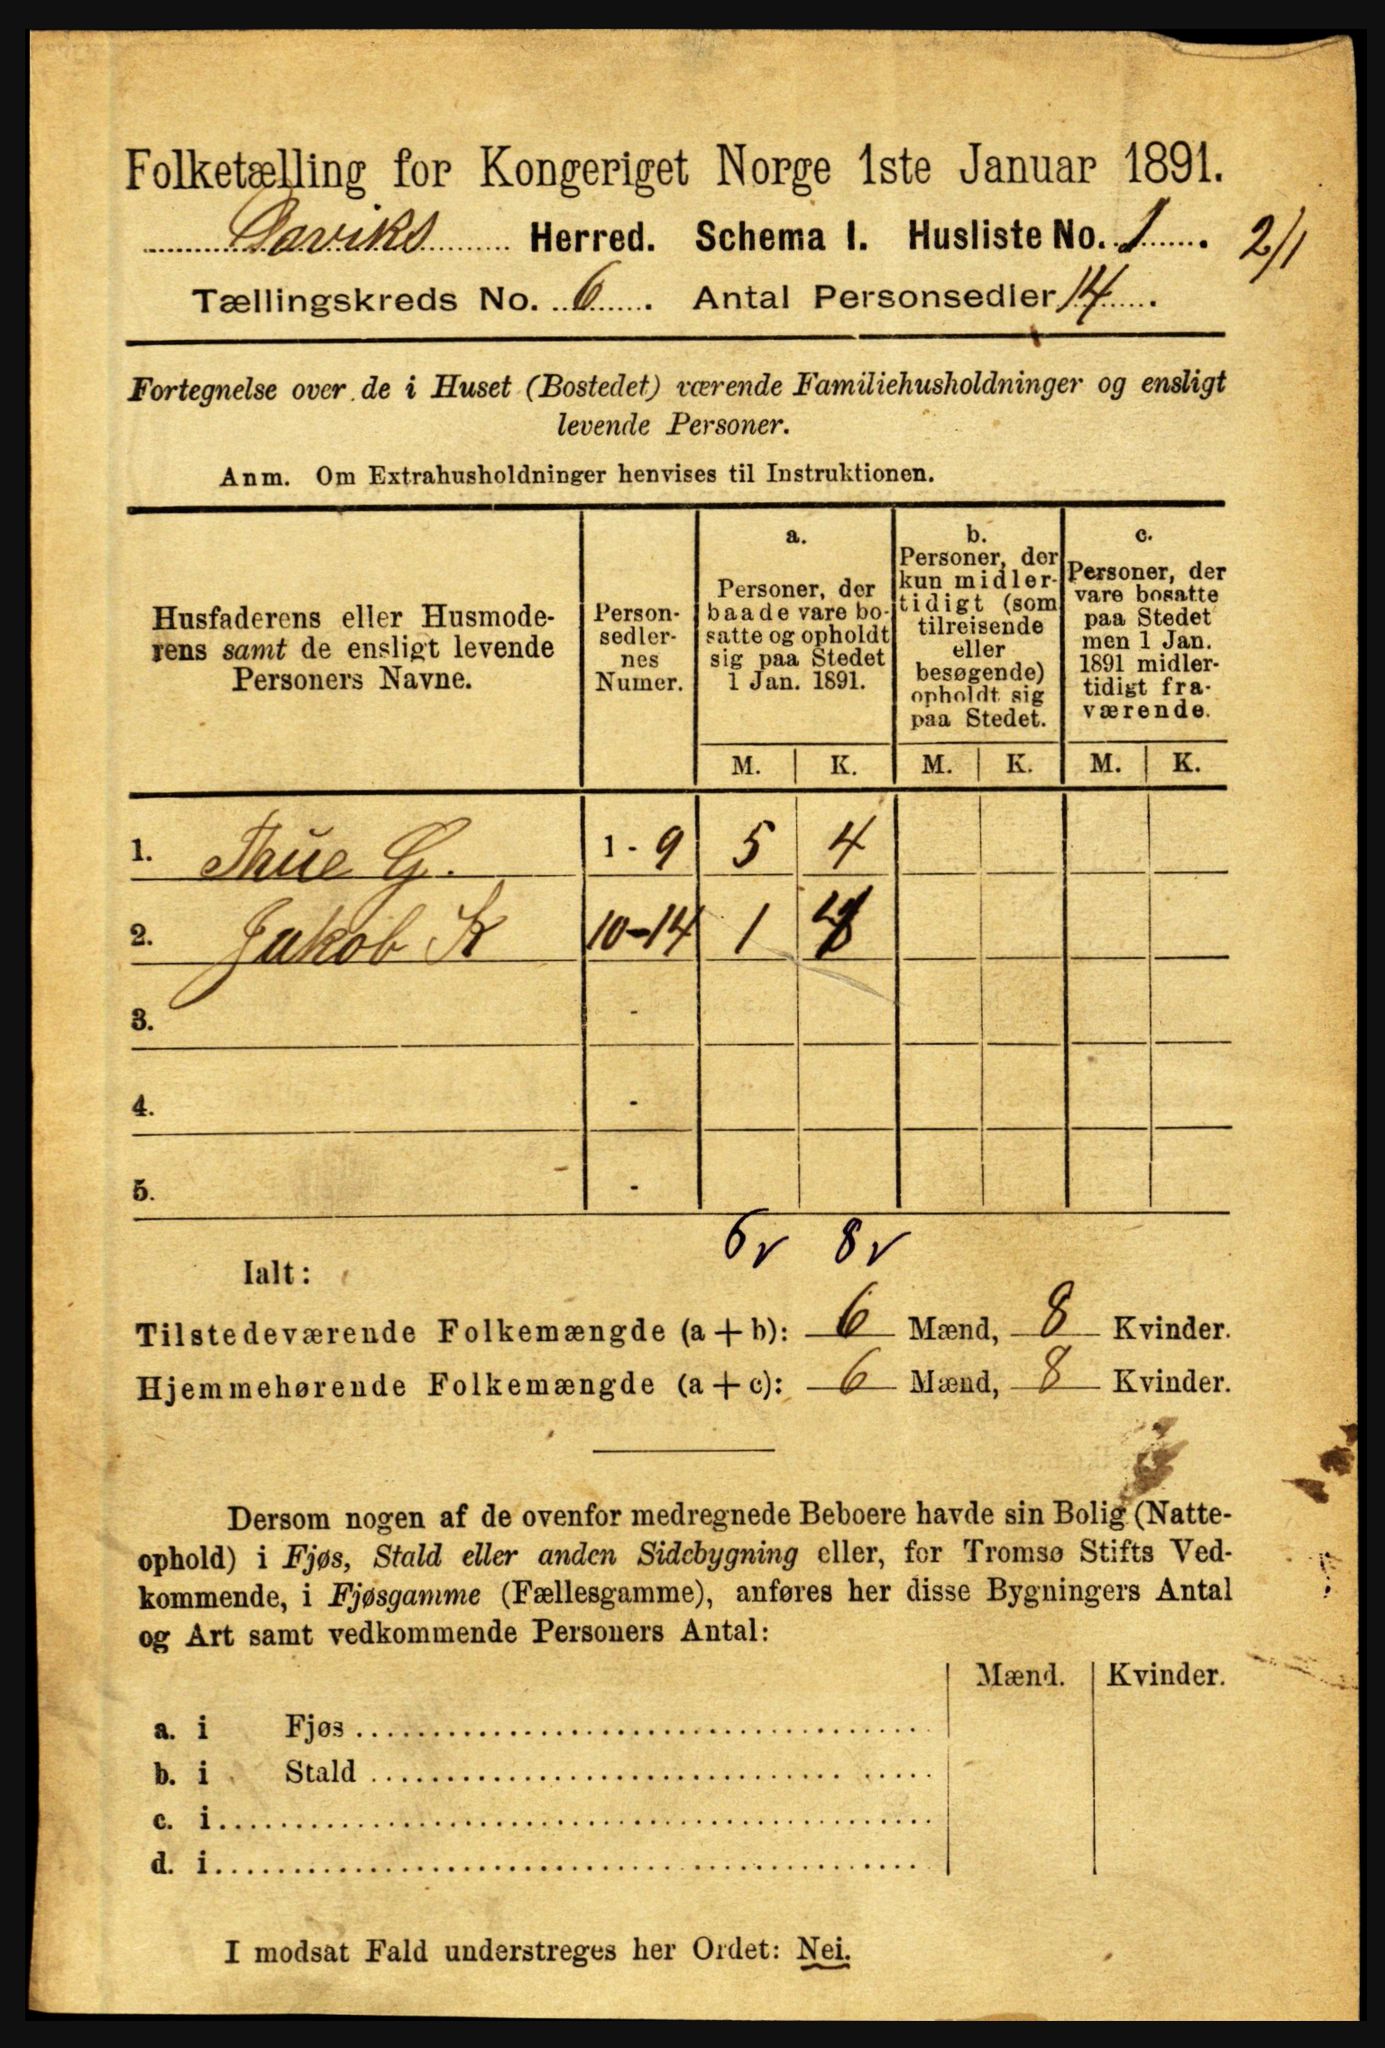 Folketælling for Kongeriget Norge 1ste Januar 1891.
Daviks Herred. Schema I. Husliste No. 1. 2/1
Tællingskreds No. 6. Antal Personsedler 14.
Fortegnelse over de i Huset (Bostedet) værende Familiehusholdninger og ensligt
levende Personer.
Anm. Om Extrahusholdninger henvises til Instruktionen.
Husfaderens eller Husmode-
rens samt de ensligt levende
Personers Navne.
Person-
sedler-
nes
Numer.
a.
Personer, der
baade vare bo-
satte og opholdt
sig paa Stedet
1 Jan. 1891.
b.
Personer, der
kun midler-
tidigt (som
tilreisende
eller
besøgende)
opholdt sig
paa Stedet.
c.
Personer, der
vare bosatte
paa Stedet
men 1 Jan.
1891 midler-
tidigt fra-
værende.
M. K. M. K. M. K.
1. Thue G. 1 - 9 5 4
2. Jakob K 10-14 1 4
3. -
4. -
5. -
6 v 8 v
Ialt:
Tilstedeværende Folkemængde (a + b): 6 Mænd, 8 Kvinder.
Hjemmehørende Folkemængde (a + c): 6 Mænd, 8 Kvinder.
Dersom nogen af de ovenfor medregnede Beboere havde sin Bolig (Natte-
ophold) i Fjøs, Stald eller anden Sidebygning eller, for Tromsø Stifts Ved-
kommende, i Fjøsgamme (Fællesgamme), anføres her disse Bygningers Antal
og Art samt vedkommende Personers Antal:
Mænd. Kvinder.
a. i Fjøs
b. i Stald
c. i
d. i
I modsat Fald understreges her Ordet: Nei.